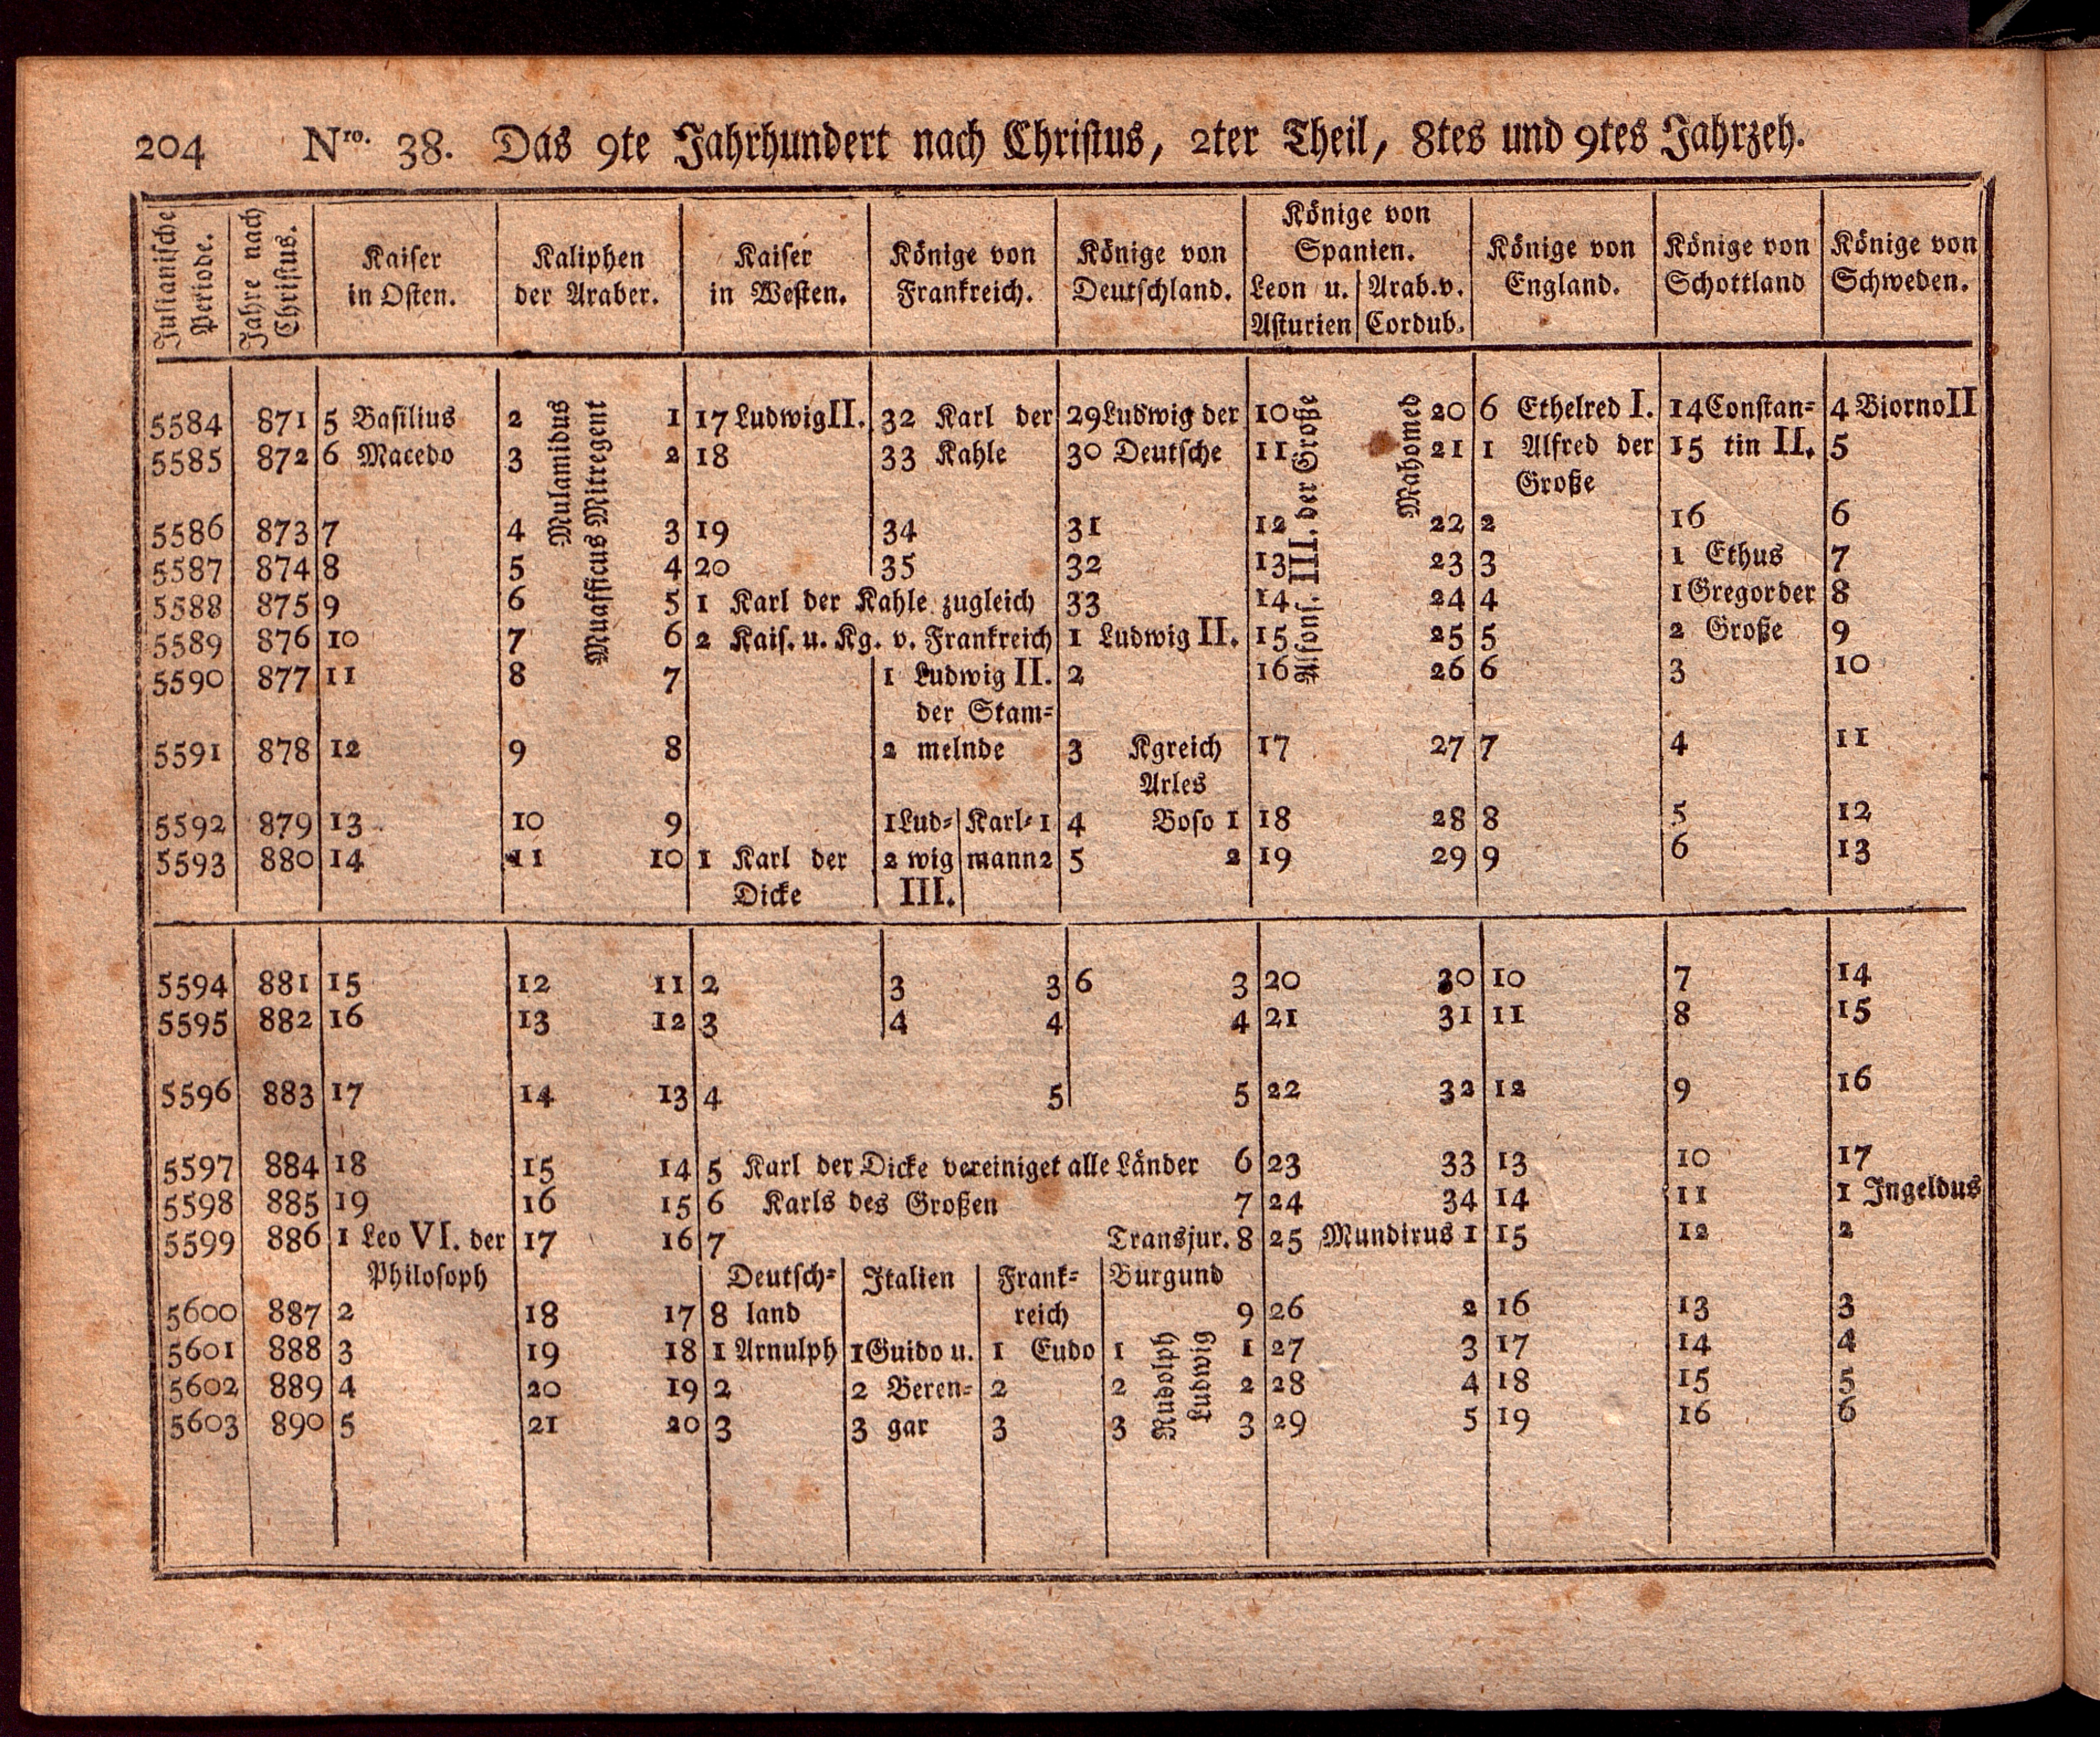 204 Nro. 38. Das 9te Jahrhundert nach Christus, 2ter Theil, 8tes und 9tes Jahrzeh.
Julianische Periode. | Jahre nach Christus. | Kaiser in Osten. | Kaliphen der Araber. | Kaiser in Westen. | Könige von Frankreich. | Könige von Deutschland. | Könige von Spanien. Leon u. Asturien | Arab. v. Cordub. | Könige von England. | Könige von Schottland | Könige von Schweden.
Mulamidus
Muafficus Mitregent
Alfons. III. der Große
Mahomed
5584 871 5 Basilius 2 1 17 Ludwig II. 32 Karl der 29 Ludwig der 10 20 6 Ethelred I. 14 Constan= 4 Biorno II
5585 872 6 Macedo 3 2 18 33 Kahle 30 Deutsche 11 21 1 Alfred der 15 tin II. 5
Große
5586 873 7 4 3 19 34 31 12 22 2 16 6
5587 874 8 5 4 20 35 32 13 23 3 1 Ethus 7
5588 875 9 6 5 1 Karl der Kahle zugleich 33 14 24 4 1 Gregor der 8
5589 876 10 7 6 2 Kais. u. Kg. v. Frankreich 1 Ludwig II. 15 25 5 2 Große 9
5590 877 11 8 7 1 Ludwig II. 2 16 26 6 3 10
der Stam=
5591 878 12 9 8 2 melnde 3 Kgreich 17 27 7 4 11
Arles
5592 879 13 10 9 1 Lud= Karl= 1 4 Boso 1 18 28 8 5 12
5593 880 14 11 10 1 Karl der 2 wig mann 2 5 2 19 29 9 6 13
Dicke III.
5594 881 15 12 11 2 3 3 6 3 20 30 10 7 14
5595 882 16 13 12 3 4 4 4 21 31 11 8 15
5596 883 17 14 13 4 5 5 22 32 12 9 16
5597 884 18 15 14 5 Karl der Dicke vereiniget alle Länder 6 23 33 13 10 17
5598 885 19 16 15 6 Karls des Großen 7 24 34 14 11 1 Ingeldus
5599 886 1 Leo VI. der 17 16 7 Transjur. 8 25 Mundirus 1 15 12 2
Philosoph Deutsch= Italien Frank= Burgund
5600 887 2 18 17 8 land reich 9 26 2 16 13 3
5601 888 3 19 18 1 Arnulph 1 Guido u. 1 Eudo 1 1 27 3 17 14 4
5602 889 4 20 19 2 2 Beren= 2 2 2 28 4 18 15 5
5603 890 5 21 20 3 3 gar 3 3 3 29 5 19 16 6
Rudolph
Ludwig